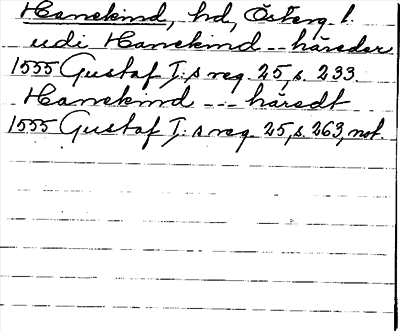 Hanekind, hd, Österg. l.
udi Hanekind -- häreder
1555 Gustaf I:s reg. 25, s. 233.
Hanekind --- häredt
1555 Gustaf I:s reg. 25, s. 263, not.